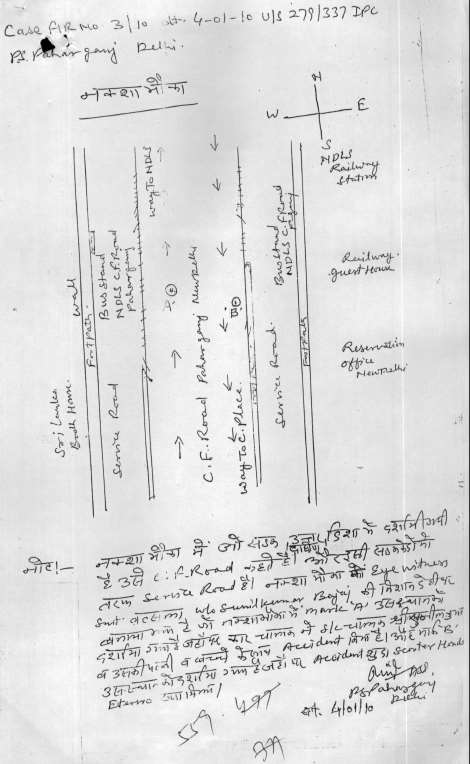 Case FIR No 3/10 dt. 4-01-10 U/S 279/337 IPC
PS. Paharganj Delhi.
नक्शा मौका
N
W E
S
NDLS
Railway
Station
Railway
guest House
Reservation
office
New Delhi
Sri Lanka
Bodh House.
wall
Foot Path.
Service Road
Bus stand
NDLS C.F. Road
Paharganj
way To NDLS
C.F. Road Paharganj New Delhi
B
way To C. Place.
Service Road.
Bus stand
NDLS C.F. Road
Foot Path
नोट!— नक्शा मौका में जो सड़क दिशा में दर्शायी गयी
है उसे C.F. Road कहते हैं
तरफ Service Road है। नक्शा मौका Eye witness
Smt w/o Sunil Kumar की निशान देही पर
बनाया गया है जो नक्शा मौका में mark 'A' उस स्थान को
दर्शाया गया है जहाँ पर कार चालक ने
व उसकी पत्नी व बच्चों के साथ Accident किया है। और मार्क 'B'
उस स्थान को दर्शाया गया है जहाँ पर Accident Scooter Honda
Eterno
PS Paharganj
Delhi
dt. 4/01/10